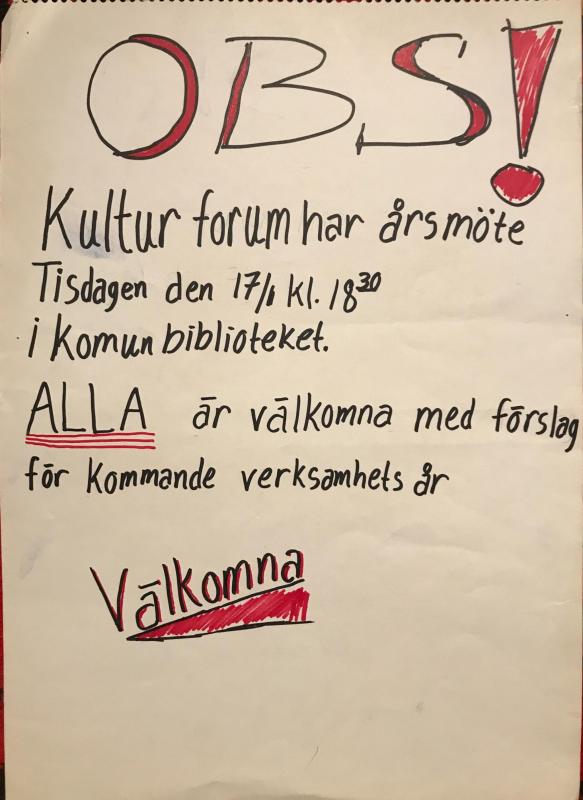 OBS!
Kultur forum har årsmöte
Tisdagen den 17/1 kl. 18³⁰
i Komun biblioteket.
ALLA är välkomna med förslag
för Kommande verksamhets år
Välkomna